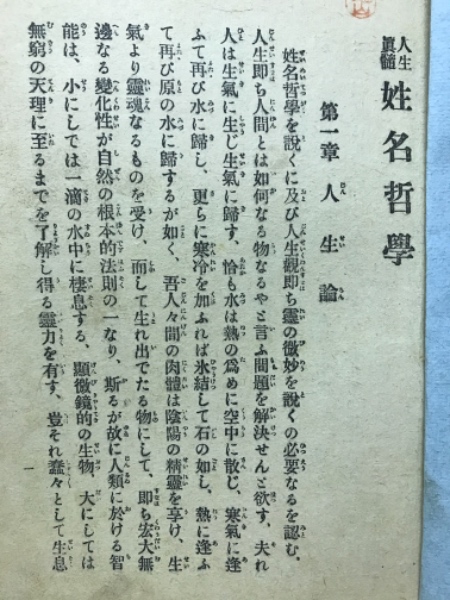 人生
眞髓
姓名哲學
第一章 人生論
姓名哲學を說くに及び人生觀即ち靈の微妙を說くの必要なるを認む。
人生即ち人間とは如何なる物なるやと言ふ問題を解決せんと欲す、夫れ
人は生氣に生じ生氣に歸す、恰も水は熱の爲めに空中に散じ、寒氣に逢
ふて再び水に歸し、更らに寒冷を加ふれば氷結して石の如し、熱に逢ふ
て再び原の水に歸するが如く、吾人々間の肉體は陰陽の精靈を享け、生
氣より靈魂なるものを受け、而して生れ出でたる物にして、即ち宏大無
邊なる變化性が自然の根本的法則の一なり、斯るが故に人類に於ける智
能は、小にしては一滴の水中に棲息する、顯微鏡的の生物、大にしては
無窮の天理に至るまでを了解し得る靈力を有す、豈それ蠢々として生息
一